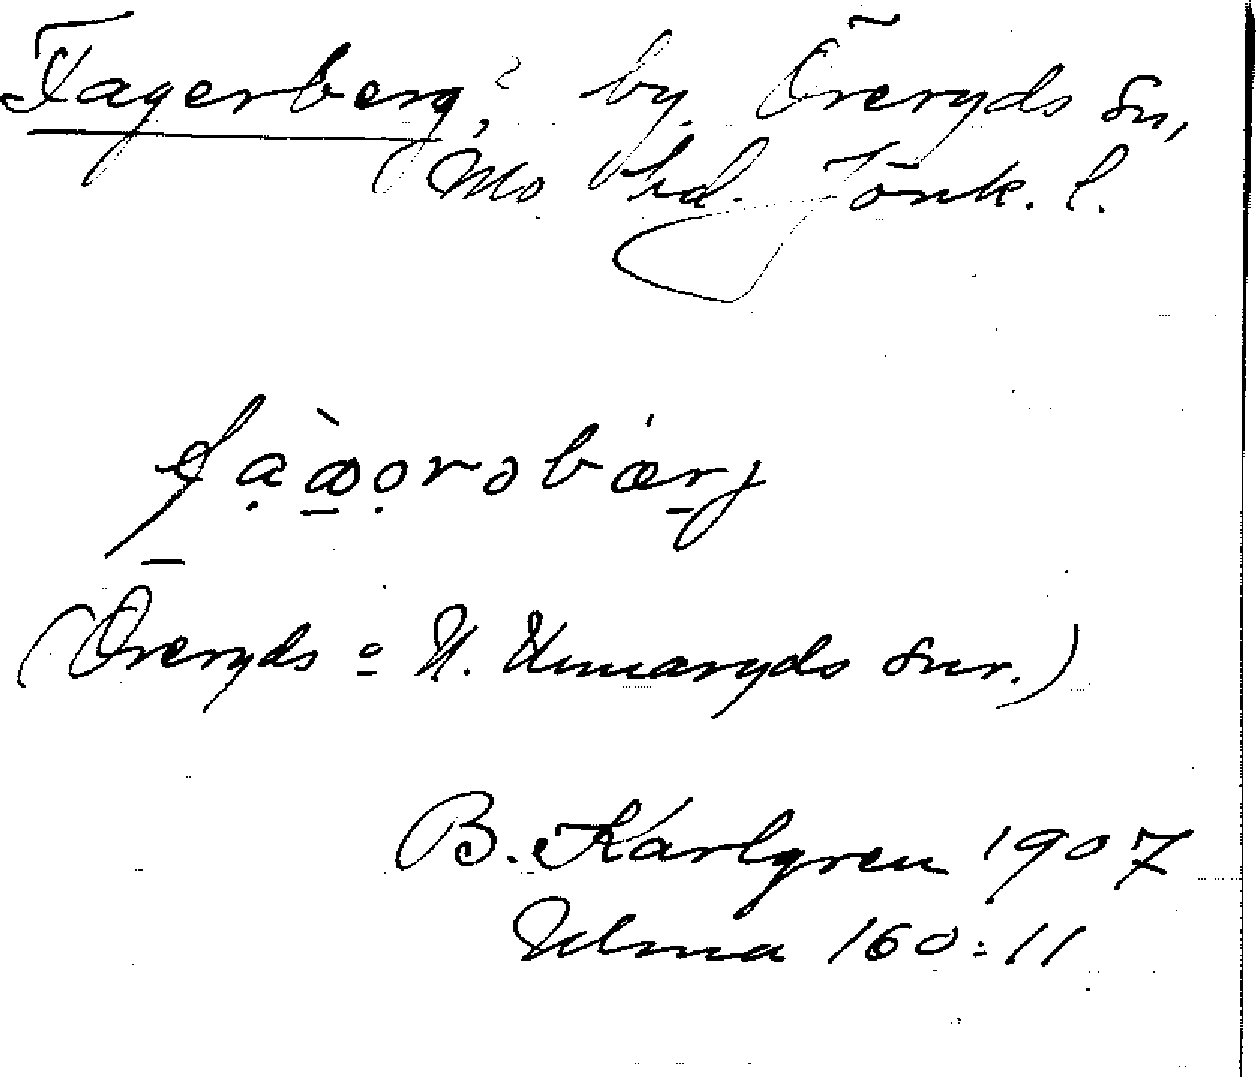 Fagerberg, by. Öreryds sn,
Mo hd. Jönk. l.
(Öreryds = N. Unnaryds snr.)
B. Karlgren 1907
Ulma 160:11